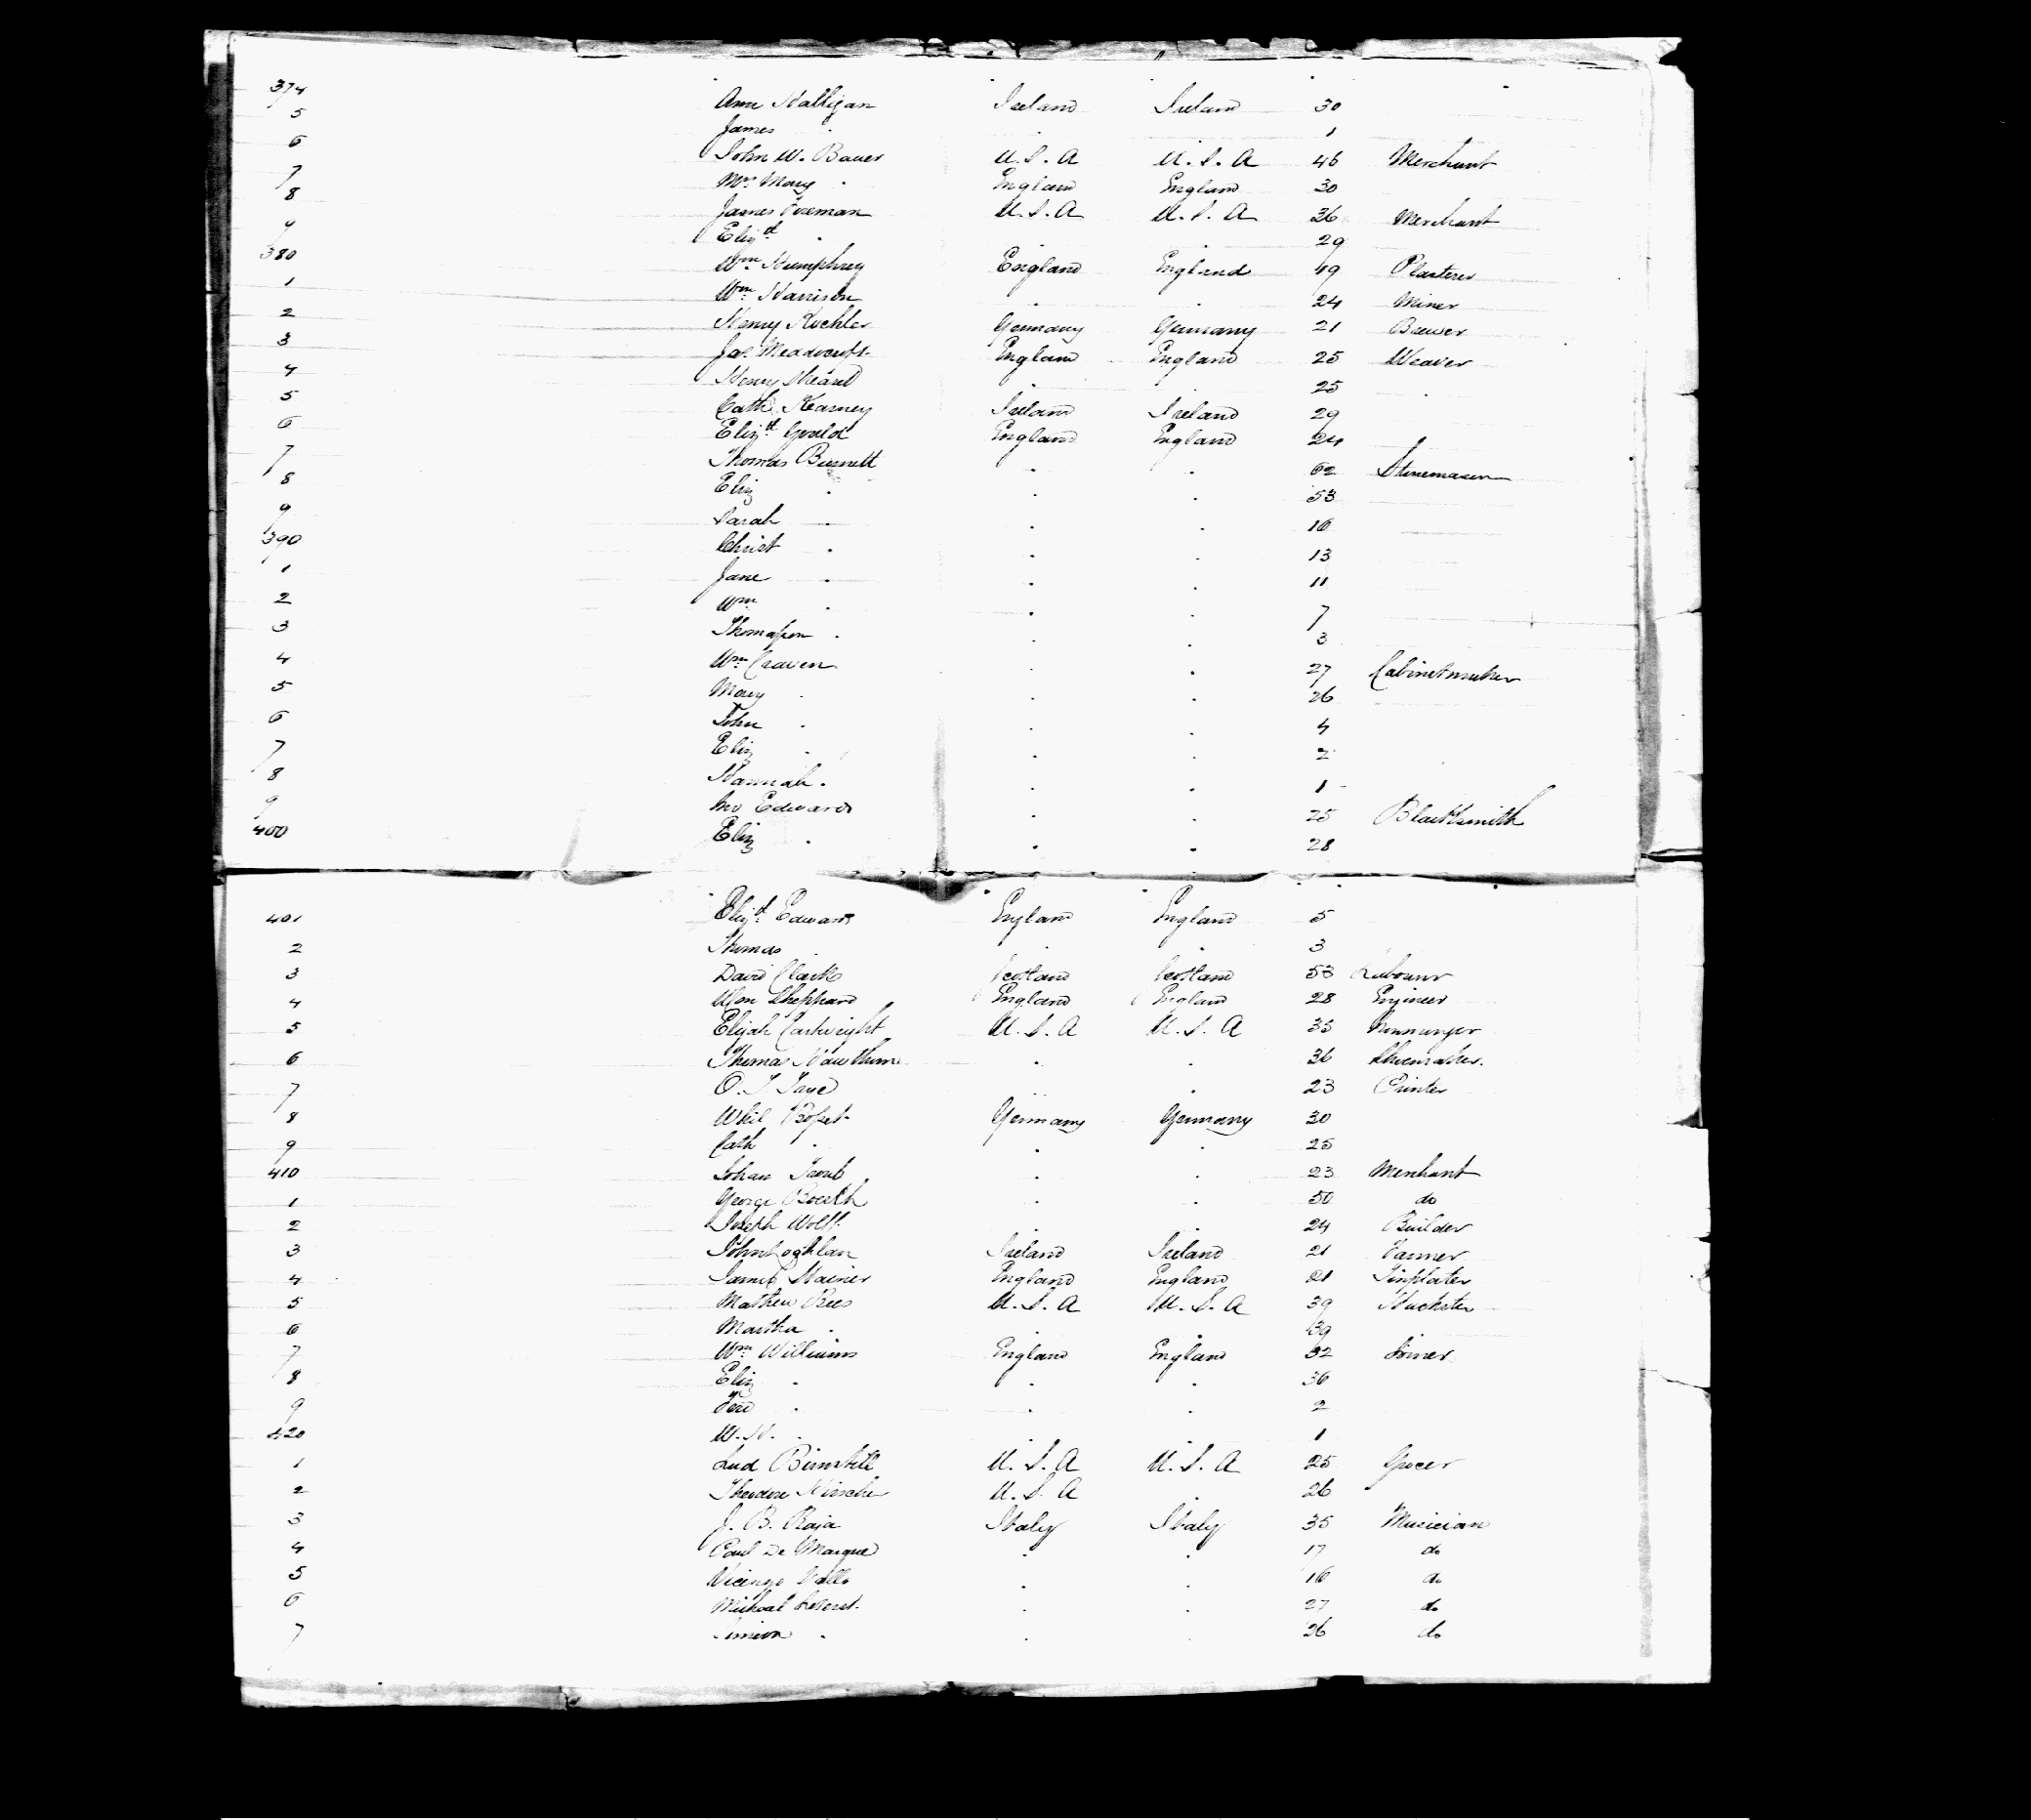 374 Ann Halligan Ireland Ireland 30
5 James . . . 1
6 John W. Bauer U.S.A U.S.A 46 Merchant
7 Mrs. Mary . England England 30
8 James Foreman U.S.A U.S.A 36 Merchant
9 Elizth . . . 29
380 Wm. Humphrey England England 49 Plasterer
1 Wm. Harrison . . 24 Miner
2 Henry Kuchler Germany Germany 21 Brewer
3 Jas. Meadcroft England England 25 Weaver
4 Henry . . 25 .
5 Cath. Kearney Ireland Ireland 29
6 Elizth. England England 24
7 Thomas Burnett . . 62 Stonemason
8 Eliz . . . 53
9 Sarah . . . 16
390 Christ . . . 13
1 Jane . . . 11
2 Wm . . . 7
3 Thomason . . . 3
4 Wm. Craven . . 27 Cabinetmaker
5 Mary . . . 26
6 John . . . 4
7 Eliz . . . 2
8 Hannah . . . 1
9 Jno Edwards . . 25 Blacksmith
400 Eliz . . . 28
401 Elizth. Edwards England England 5
2 Thomas . . . 3
3 David Clark Scotland Scotland 53 Labourer
4 Wm Shephard England England 28 Engineer
5 Elijah Cartwright U.S.A U.S.A 35
6 Thomas Hawthorne . . 36 Shoemaker.
7 O. T. . . 23 Printer
8 Germany Germany 30
9 Cath . . . 25
410 Johan . . 23 Merchant
1 George . . 50 do
2 Joseph Wolff . . 24 Builder
3 John Coghlan Ireland Ireland 21 Farmer
4 James Stainer England England 21 Tinplater
5 Mathew Rees U.S.A U.S.A 39 Huckster
6 Martha . . . 39
7 Wm. Williams England England 32 Joiner
8 Eliz . . . 36
9 Fred . . . 2
420 W.H. . . . 1
1 Lud U.S.A U.S.A 25 Grocer
2 Theodore U.S.A . 26
3 J. B. Raja Italy Italy 35 Musician
4 Paul De Marque . . 17 do
5 . . 16 do
6 Michael . . 27 do
7 Simeon . . . 26 do